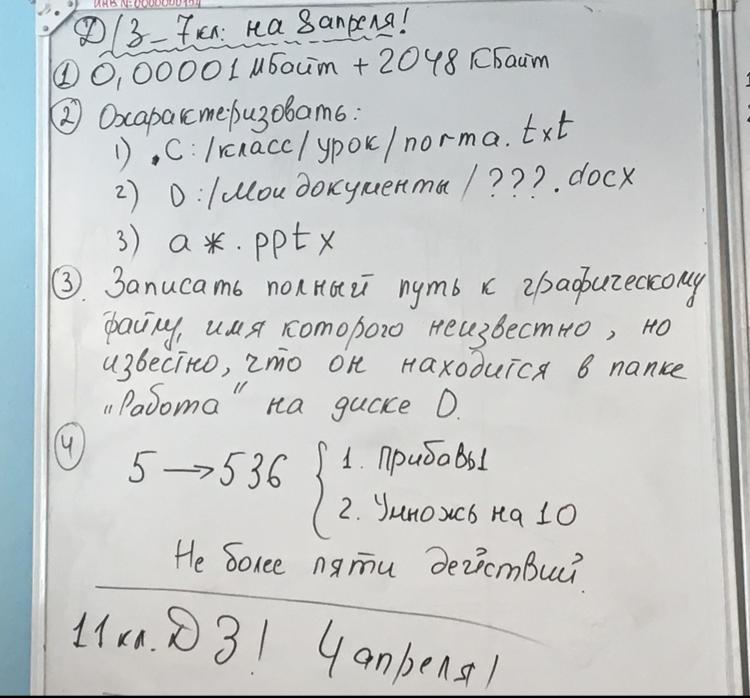 ИНВ №0000000154
Д/З - 7кл: на 8 апреля!
① 0,00001 Мбайт + 2048 Кбайт
② Охарактеризовать:
1) C:/класс/урок/почта.txt
2) D:/Мои документы/???.docx
3) a*.pptx
③ Записать полный путь к графическому
файлу, имя которого неизвестно, но
известно, что он находится в папке
"Работа" на диске D.
④
5 → 536 { 1. Прибавь 1
2. Умножь на 10
Не более пяти действий.
11 кл. ДЗ! 4 апреля!